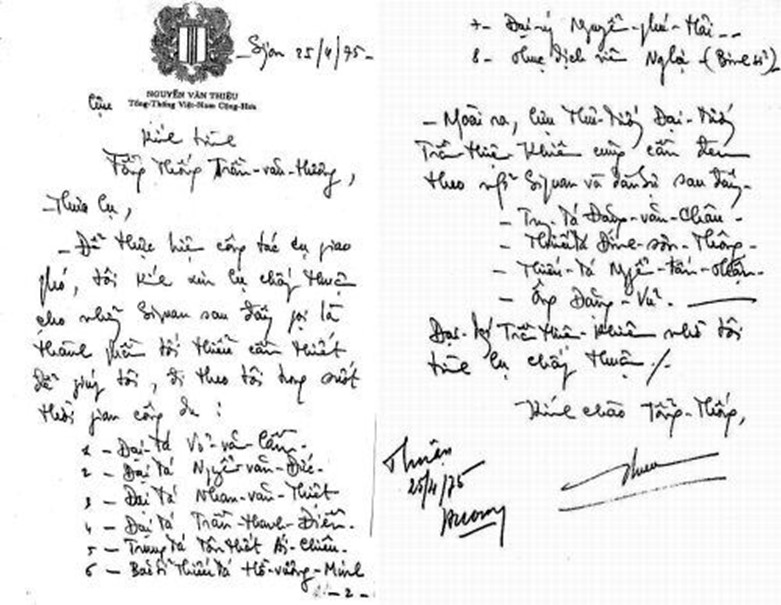 Sgon 25/4/75
NGUYỄN VĂN THIỆU
Tổng-Thống Việt-Nam Cộng-Hòa
Cựu
Kính trình
Tổng Thống Trần-văn-Hương,
Thưa Cụ,
- Để thực hiện công tác Cụ giao
phó, tôi kính xin Cụ chấp thuận
cho những Sĩquan sau đây gọi là
thành phần tối thiểu cần thiết
để giúp tôi, đi theo tôi trong suốt
thời gian công du :
1 - Đại tá Võ-văn-Cầm-
2 - Đại tá Nguyễn văn-Đức-
3 - Đại tá Nhan-văn-Thiết
4 - Đại tá Trần-thanh-Điền-
5 - Trung tá Tôn thất Ái-Chiêu-
6 - Bác sĩ Thiếu tá Hồ-vương-Minh
-2-
7- Đại-úy Nguyễn-phú-Hải
8- Phục dịch viên Nghị (Bình sĩ)
- Ngoài ra, Cựu Thủ-Tướng Đại-Tướng
Trần Thiện Khiêm cũng cần đem
theo những Sĩquan và dân sự sau đây-
- Trung-tá Đặng-văn-Châu-
- Thiếu tá Đinh-sơn-Thông-
- Thiếu-tá Nguyễn-tấn-Phận-
- Ông Đặng-Vũ-
Đại-tướng Trần Thiện-Khiêm nhờ tôi
trình Cụ chấp thuận ./.
Kính chào Tổng-Thống,
Thuận
25/4/75
Hương
Thieu